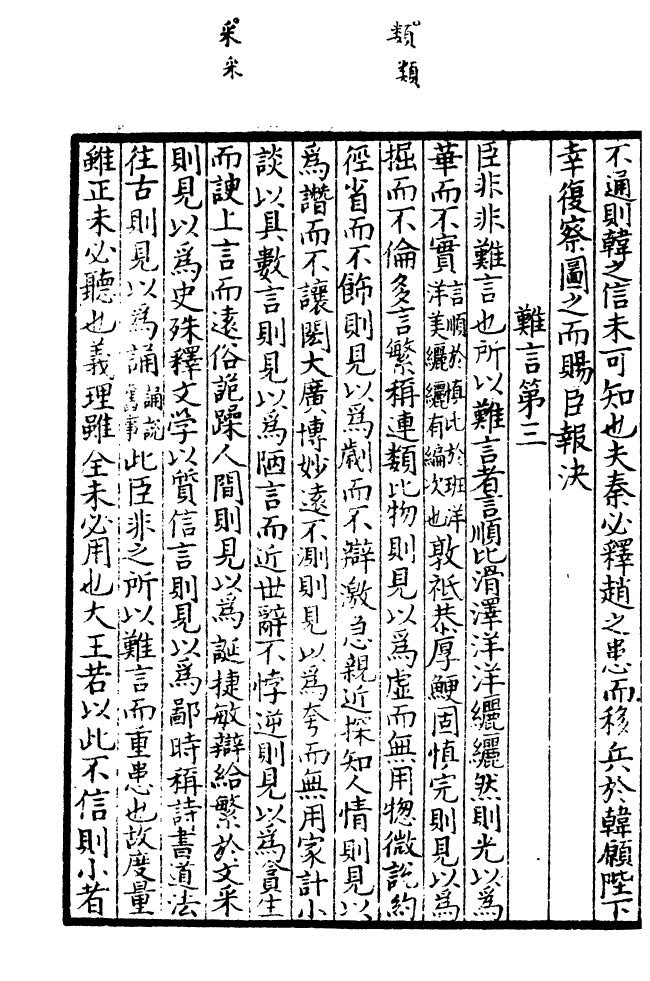 類 類
采 采
不通則韓之信未可知也夫秦必釋趙之患而移兵於韓願陛下
幸復察圖之而賜臣報決
難言第三
臣非非難言也所以難言者言順比滑澤洋洋纚纚然則見以為
華而不實言順於慎比於班洋洋美纚纚有編次也敦祗恭厚鯁固慎完則見以為
掘而不倫多言繁稱連類比物則見以為虛而無用惣微說約
徑省而不飾則見以為劌而不辯激急親近探知人情則見以
為譖而不讓閎大廣博妙遠不測則見以為夸而無用家計小
談以具數言則見以為陋言而近世辭不悖逆則見以為貪生
而諛上言而遠俗詭躁人間則見以為誕捷敏辯給繁於文采
則見以為史殊釋文学以質信言則見以為鄙時稱詩書道法
往古則見以為誦誦說舊事此臣非之所以難言而重患也故度量
雖正未必聽也義理雖全未必用也大王若以此不信則小者